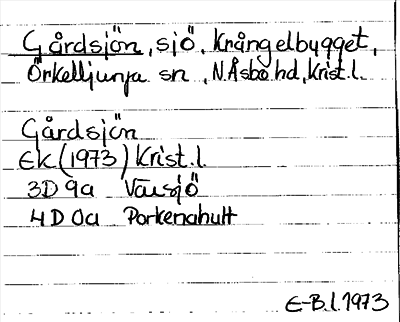 Gårdsjön, sjö, Krångelbygget,
Örkelljunga sn, N Åsbo hd, Krist. l.
Gårdsjön
EK (1973) Krist. l.
3D 9a Växsjö
4D 0a Porkenahult
E-B. l. 1973